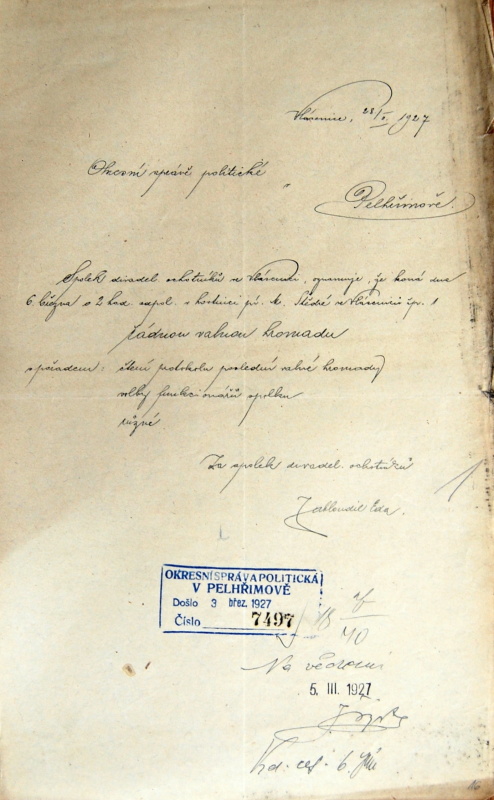 Vlásenice, 28/II. 1927
Okresní správě politické
Pelhřimově.
Spolek divadel. ochotníků ve Vlásenici, oznamuje, že koná dne
6. března o 2 hod. odpol. v hostinci pí. M. ve Vlásenici čp. 1
řádnou valnou hromadu
s pořadem: čtení protokolu poslední valné hromady
volby funkcionářů spolku
různé
Za spolek divadel. ochotníků
Zabloudil Eda.
OKRESNÍ SPRÁVA POLITICKÁ
V PELHŘIMOVĚ
Došlo 3 břez. 1927
Číslo 7497
18
Na vědomí
5. III. 1927